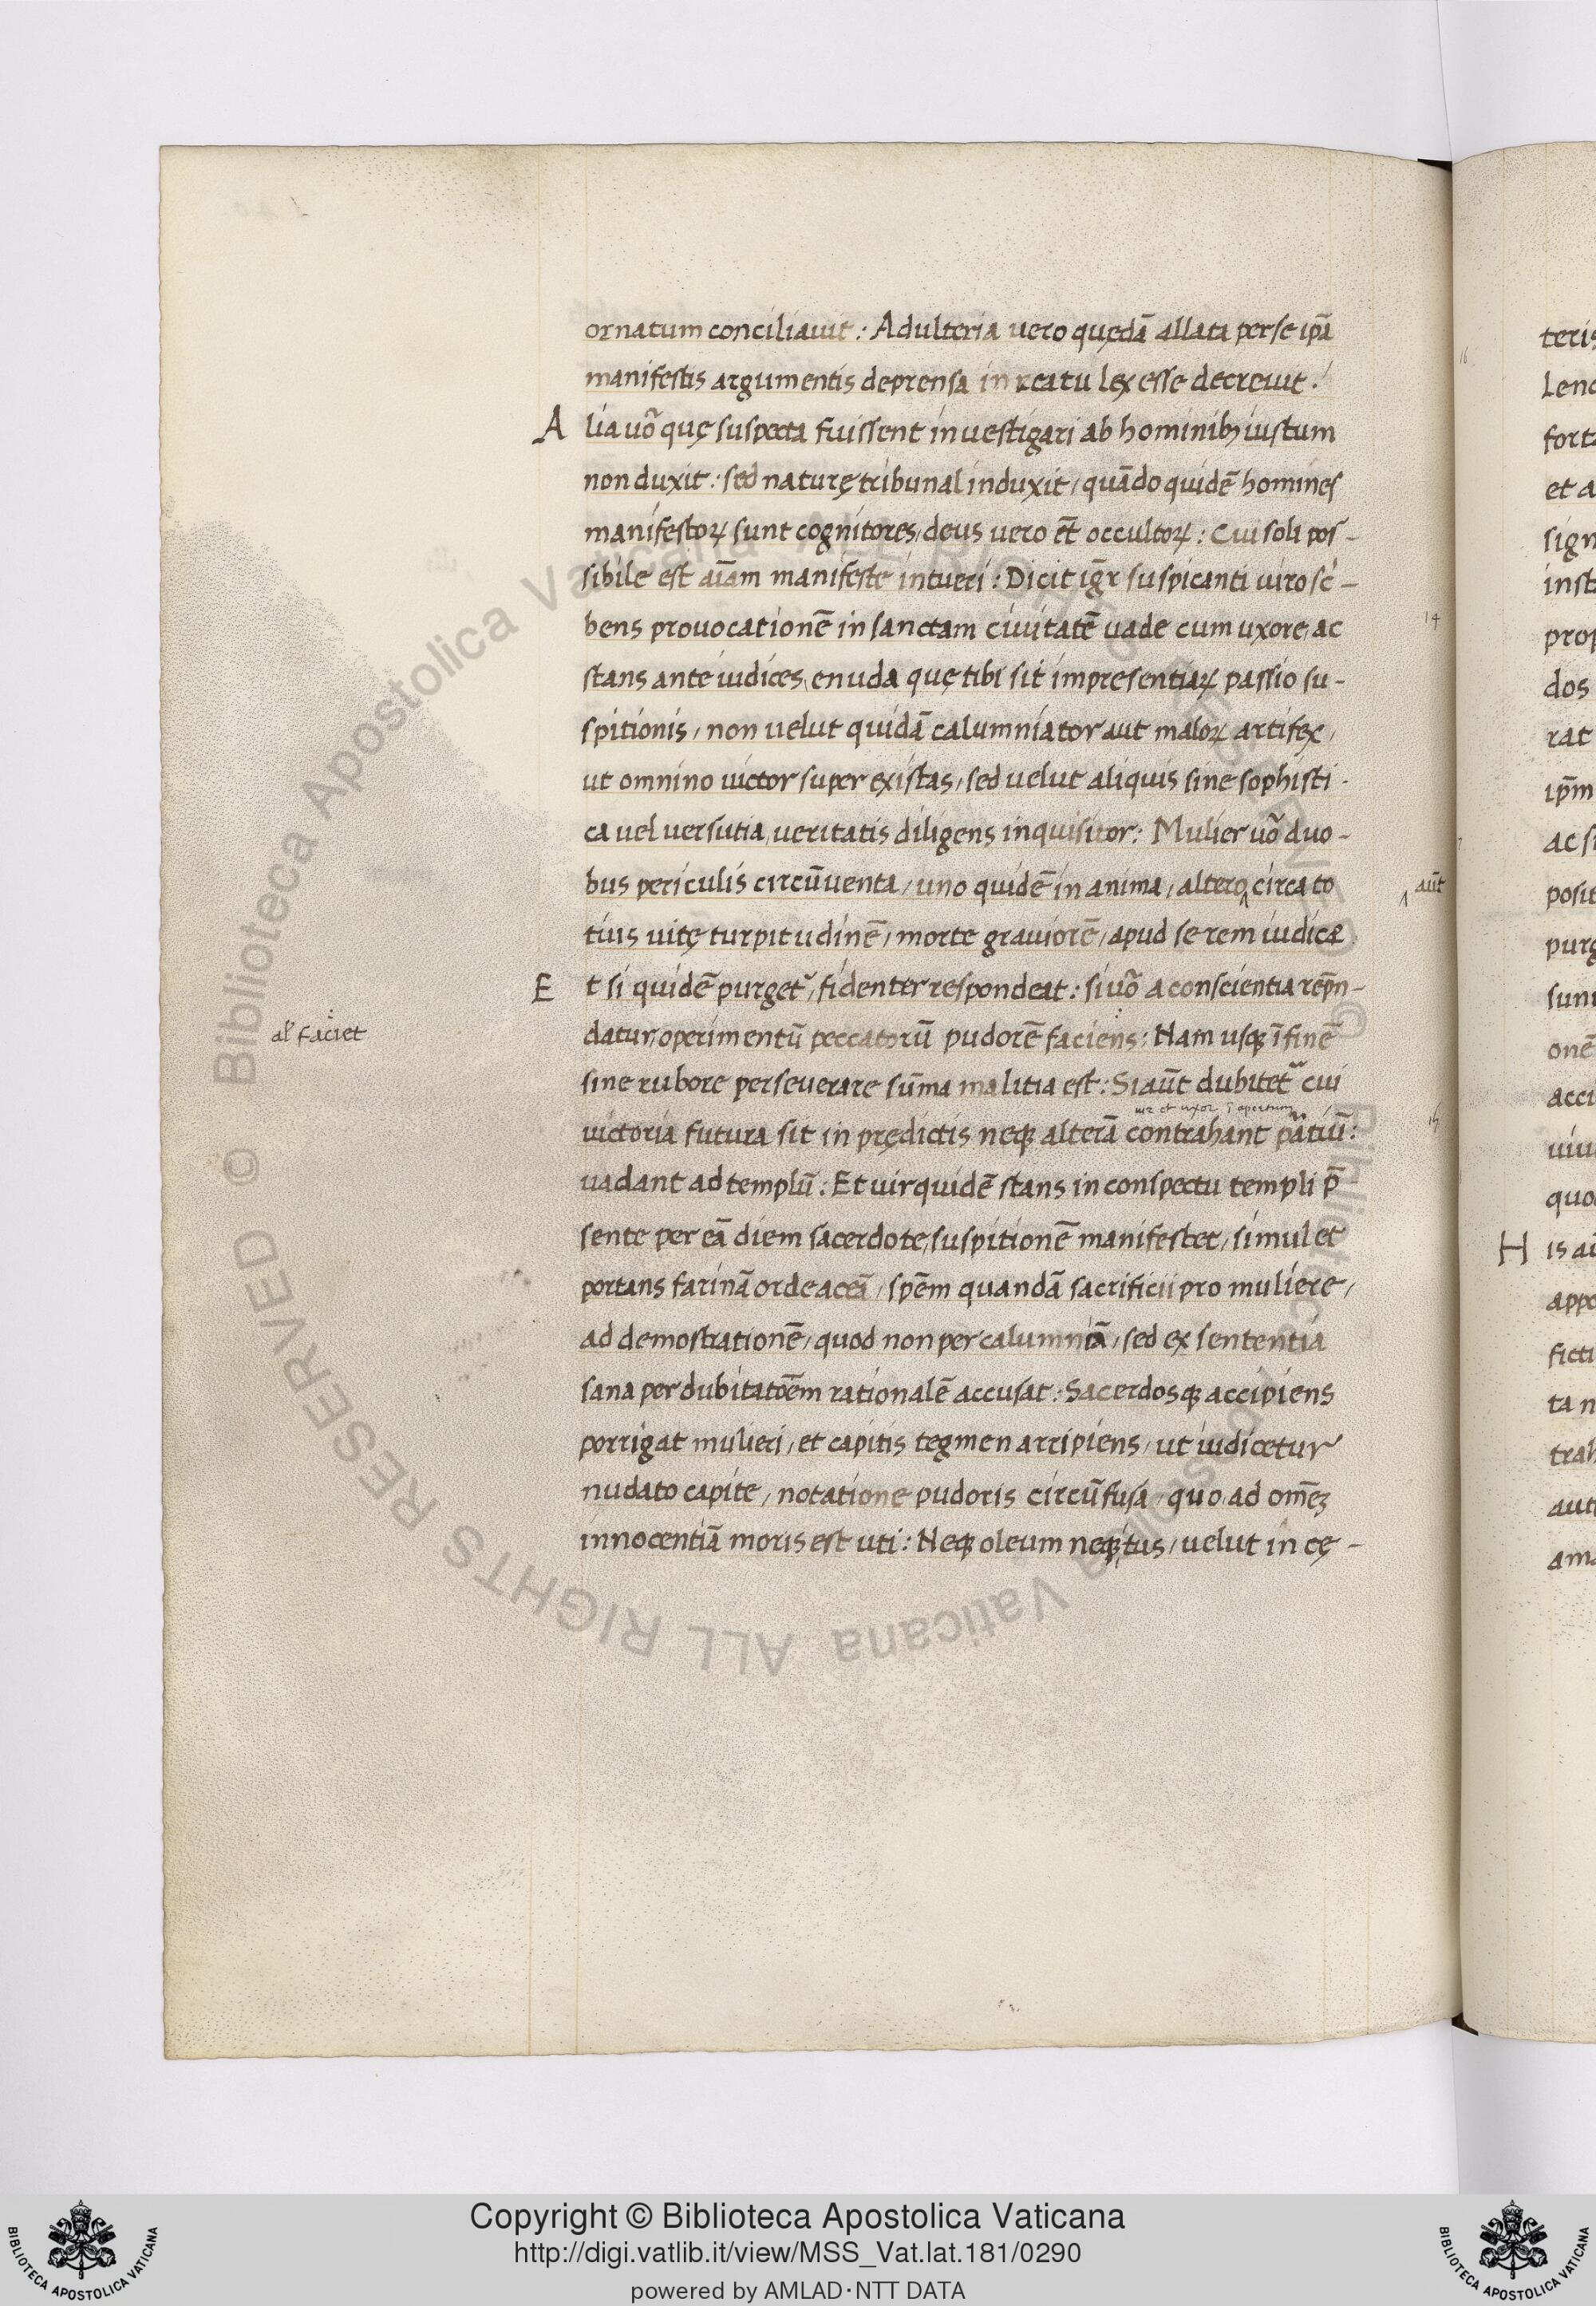 ornatum conciliauit: Adulteria uero quędā allata per se ip̄a
manifestis argumentis deprensa in reatu lex esse decreuit.
A lia uō quę suspecta fuissent inuestigari ab hominibꝫ iustum
non duxit: sed naturę tribunal induxit, quādo quidē homines
manifestoꝝ sunt cognitores, deus uero et̄ occultoꝝ: Cui soli pos-
sibile est aīam manifeste intueri: Dicit igr̄ suspicanti uiro sc̄-
bens prouocationē in sanctam ciuitatē uade cum uxore, ac
stans ante iudices, enuda quę tibi sit impresentiaꝝ passio su-
spitionis, non uelut quidā calumniator aut maloꝝ artifex,
ut omnino uictor super existas, sed uelut aliquis sine sophisti-
ca uel uersutia, ueritatis diligens inquisitor: Mulier uō duo-
bus periculis circūuenta, uno quidē in anima, altero circa to
aūt
tius uitę turpitudinē, morte grauiorē, apud se rem iudicæ
E t si quidē purget᷑, fidenter respondeat: si uō a conscientia rep̄n-
datur, operimentū peccatorū pudorē faciens: Nam usqꝫ ī finē
al' faciet
sine rubore perseuerare sūma malitia est: Si aūt dubitet᷑ cui
uir et uxor ī apertum
uictoria futura sit in prędictis neqꝫ alterā contrahant pātiū:
uadant ad templū: Et uir quidē stans in conspectu templi p̄
sente per eā diem sacerdote, suspitionē manifestet, simul et
portans farinā ordeaceā, spēm quandā sacrificii pro muliere,
ad demostrationē, quod non per calumniā, sed ex sententia
sana per dubitatōem rationalē accusat: Sacerdosqꝫ accipiens
porrigat mulieri, et capitis tegmen arripiens, ut iudicetur
nudato capite, notatione pudoris circūfusa, quo ad om̄eꝫ
innocentiā moris est uti: Neqꝫ oleum neqꝫ tus, uelut in cę-
14
15
teris
fort
et a
sign
inst
prop
dos
rat
ip̄m
ac si
posit
purg
sunt
onē
acci
quo
H is aū
appo
ficti
ta n
trah
aut
ama
Copyright © Biblioteca Apostolica Vaticana
http://digi.vatlib.it/view/MSS_Vat.lat.181/0290
powered by AMLAD·NTT DATA
BIBLIOTECA APOSTOLICA VATICANA
BIBLIOTECA APOSTOLICA VATICANA
© Biblioteca Apostolica Vaticana ALL RIGHTS RESERVED © Biblioteca Apostolica Vaticana ALL RIGHTS RESERVED